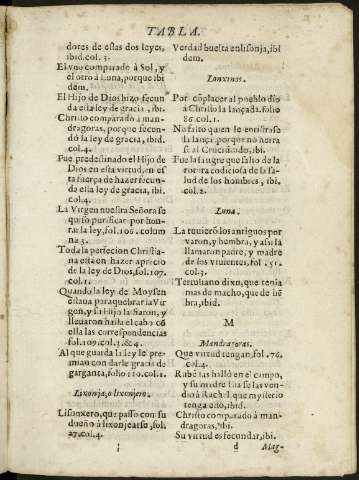 TABLA.
dores de estas dos leyes,
ibid. col. 3.
El vno comparado à Sol, y
el otro à Luna, porque ibi
dem.
El Hijo de Dios hizo fecun
da esta ley de gracia, ibi.
Christo comparado à man
dragoras, porque fecun-
dò la ley de gracia, ibid.
col. 4.
Fue predestinado el Hijo de
Dios en esta virtud, en es
ta fuerça de hazer fecun-
da esta ley de gracia, ibi.
col. 4.
La Virgen nuestra Señora se
quiso purificar por hon-
rar la ley, fol. 106. colum
na 3.
Toda la perfecion Christia-
na està en hazer aprecio
de la ley de Dios, fol. 107.
col. 1.
Quando la ley de Moysen
estaua para quebrar la Vir
gen, y su Hijo la fiaron, y
lleuaron hasta el cabo cõ
ella las correspondencias
fol. 109. col. 1. & 4.
Al que guarda la ley le pre-
mian con darle gracia de
garganta, folio 110. col. 1.
Lixonja, o lixonjero.
Lisonxero, que passo con su
dueño à lixonjearse, fol.
27. col. 4.
Verdad buelta en lisonja, ibi
dem.
Lonxinos.
Por cõplacer al pueblo dio
à Christo la lançada. folio
86. col. 1.
No faltò quien le enristrasse
la lança, porque no herra
se al Crucificado, ibi.
Fue la sangre que salio de la
rotura codiciosa de la sa-
lud de los hombres, ibi.
col. 2.
Luna.
La tuuierõ los antiguos por
varon, y hembra, y assi la
llamaron padre, y madre
de los viuientes, fol. 51.
col. 3.
Tertuliano dixo, que tenia
mas de macho, que de hẽ
bra, ibid.
M
Mandragoras.
Que virtud tengan, fol. 76.
col. 4.
Rubẽ las hallò en el campo,
y su madre Lia se las ven-
dio à Rachel. que mysterio
tenga esto, ibid.
Christo comparado à man-
dragoras, ibi.
Su virtud es fecundar, ibi.
d Mag-